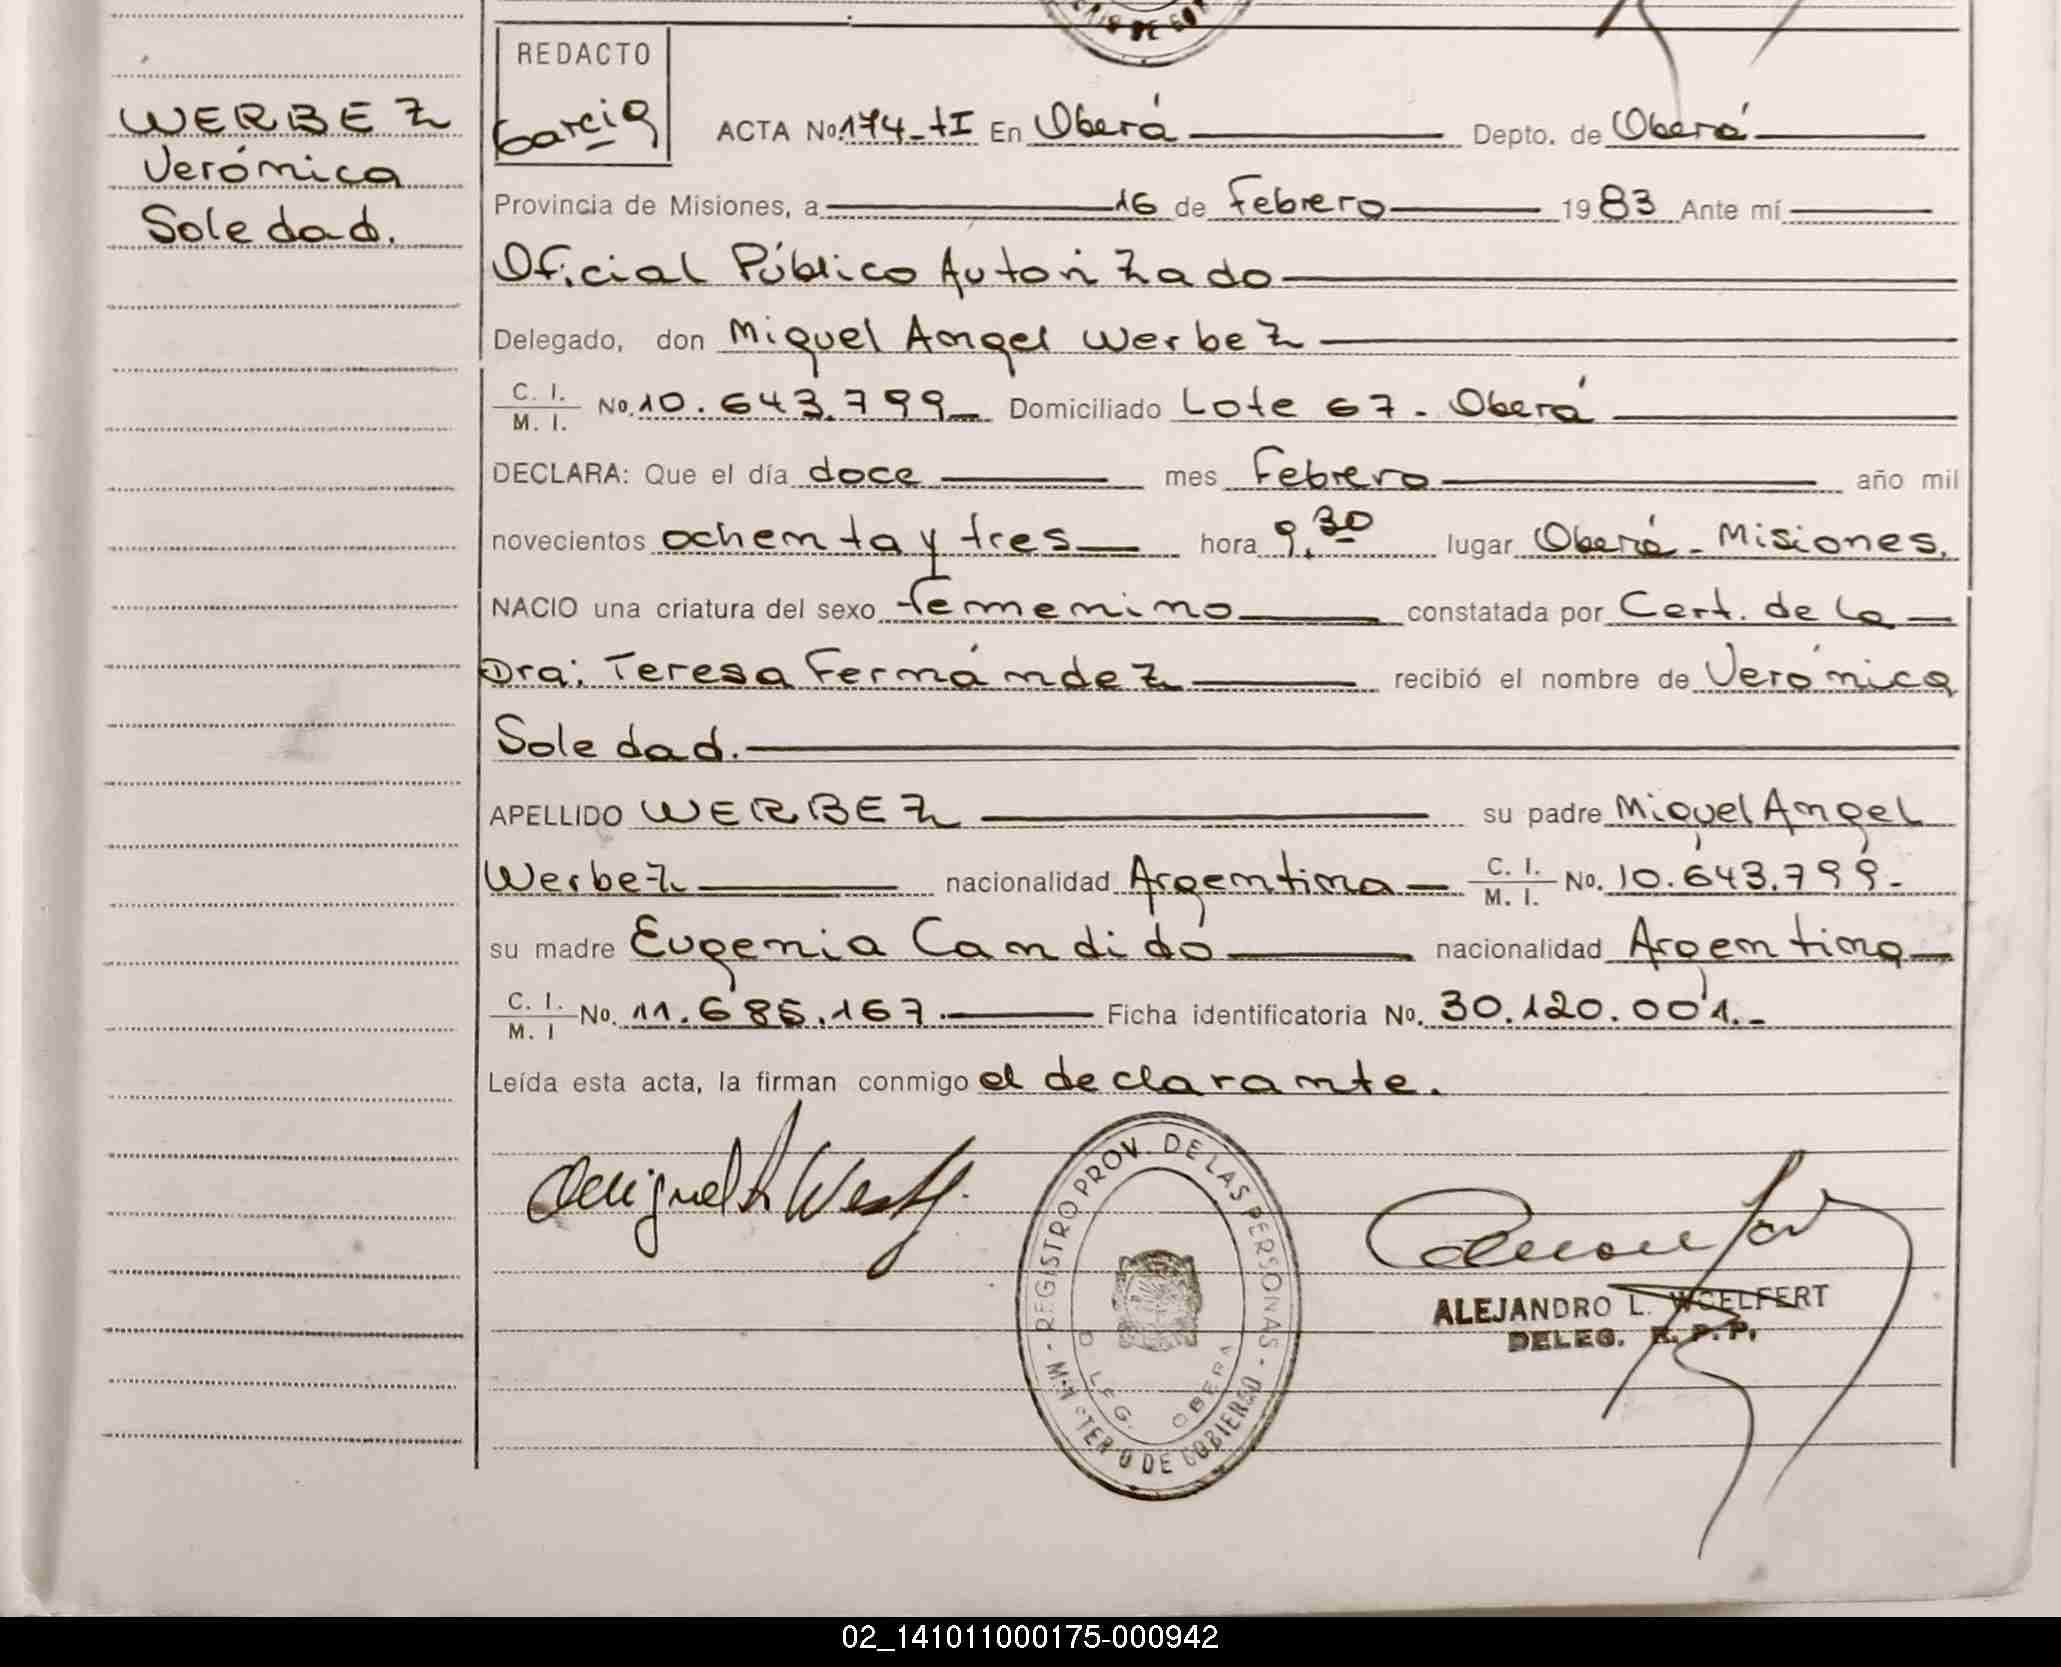 REDACTO
WERBEZ
Verónica
Soledad.
García
ACTA No. 174-tI En Oberá Depto. de Oberá
Provincia de Misiones, a 16 de Febrero 1983 Ante mí
Oficial Público Autorizado
Delegado, don Miguel Angel Werbez
C. I. / M. I. No. 10.643.799 Domiciliado Lote 67 - Oberá
DECLARA: Que el día doce mes Febrero año mil
novecientos ochenta y tres hora 9.30 lugar Oberá - Misiones.
NACIO una criatura del sexo femenino constatada por Cert. de la
Dra: Teresa Fernández recibió el nombre de Verónica
Soledad.
APELLIDO WERBEZ su padre Miguel Angel
Werbez nacionalidad Argentina C. I. / M. I. No. 10.643.799-
su madre Eugenia Candido nacionalidad Argentina
C. I. / M. I No. 11.685.167. Ficha identificatoria No. 30.120.001.-
Leída esta acta, la firman conmigo el declarante.
Miguel A Werbez
REGISTRO PROV. DE LAS PERSONAS
OBERA
ALEJANDRO L. WOELFERT
DELEG. R. P. P.
02_141011000175-000942